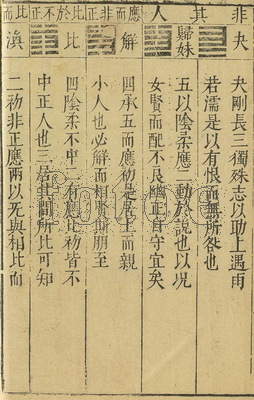 非其人
夬
夬剛長三獨殊志以助上遇雨
若濡是以有恨而無所咎也
歸妹
五以陰柔應二動於說也以況
女賢而配不良幽正自守宜矣
應而非正
解
四承五而應初是居上而親
小人也必解而相賢斯朋至
比於不正
比
四陰柔不中二有應比初皆不
中正人也三居其間所比可知
比而
渙
二初非正應兩以无與相比而